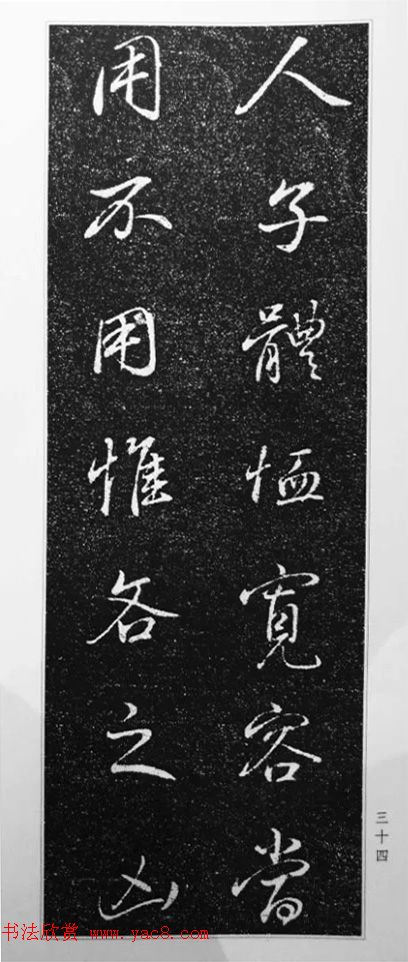 人子體恤寬容當
用不用惟各之凶
三十四
书法欣赏 www.yac8.com